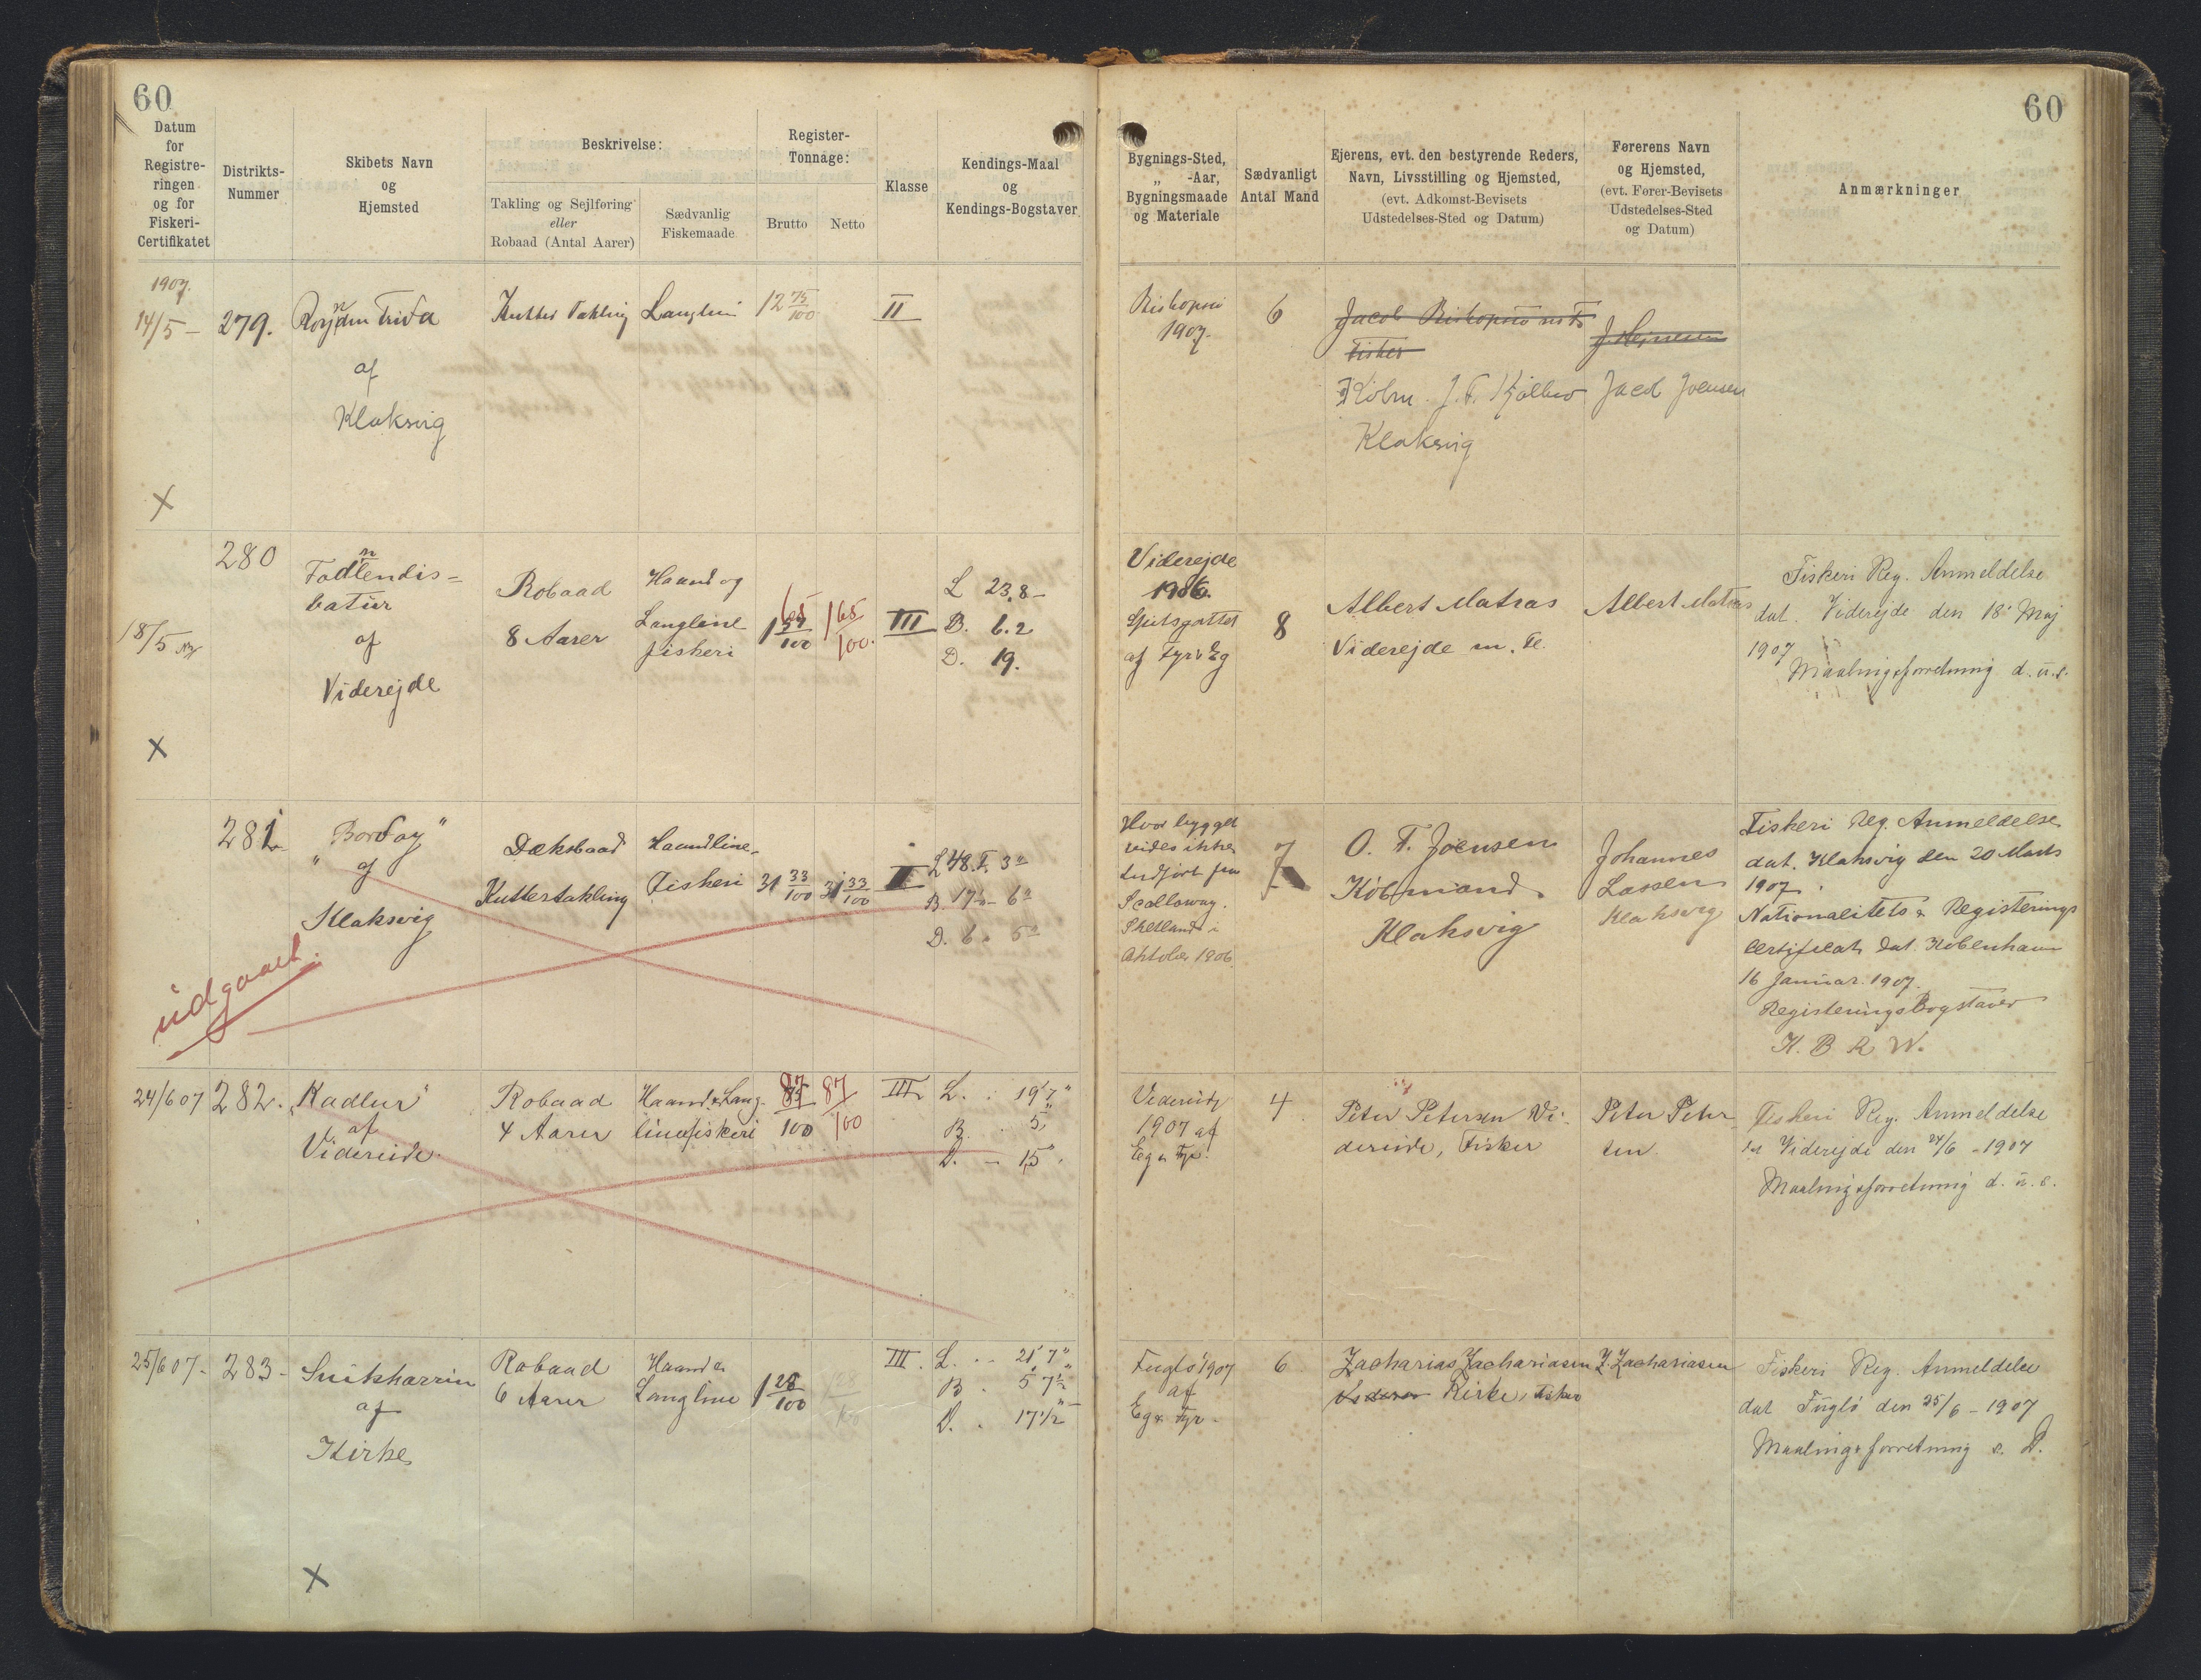 60
60
Datum
for
Registre-
ringen
og for
Fiskeri-
Certifikatet
Distrikts-
Nummer
Skibets Navn
og
Hjemsted
Beskrivelse:
Takling og Sejlføring
eller
Robaad (Antal Aarer)
Sædvanlig
Fiskemaade
Register-
Tonnage:
Brutto
Netto
Klasse
Kendings-Maal
og
Kendings-Bogstaver
Bygnings-Sted,
„ -Aar,
Bygningsmaade
og Materiale
Sædvanligt
Antal Mand
Ejerens, evt. den bestyrende Reders,
Navn, Livsstilling og Hjemsted,
(evt. Adkomst-Bevisets
Udstedelses-Sted og Datum)
Førerens Navn
og Hjemsted,
(evt. Fører-Bevisets
Udstedelses-Sted
og Datum)
Anmærkninger
1907.
14/5 -
279.
af
Klaksvig
Kutter Takling
12 75/100
II
1907.
6
Fisker
Købm. J. F. Kjølbro
Klaksvig
Jacob Joensen
X
18/5
280
batur
af
Viderejde
Robaad
8 Aarer
Haand og
Langline
fiskeri
165/100.
III
L 23,8 -
B. 6.2
D. 19.
Viderejde
1906.
Spidsgattet
af Fyr & Eg
8
Albert Matras
Viderejde m. Fl.
Albert Matras
Fiskeri Reg. Anmeldelse
dat. Viderejde den 18' Maj
1907
Maalingsforretning d. u. s.
X
281
„Bordoy"
af
Klaksvig
Dæksbaad
Kuttertakling
Haandline-
Fiskeri
31 33/100
31 33/100
II
L 48. F. 3"
B. 17 - 6"
D. 6 . 5"
Hvor bygget
vides ikke
Indført fra
Scalloway.
Shetland i
Oktober 1906.
7
O. F. Joensen
Købmand
Klaksvig
Johannes
Lassen
Klaksvig
Fiskeri Reg. Anmeldelse
dat. Klaksvig den 20 Marts
1907.
Nationalitets & Registerings
Certificat dat. København
16 Januar. 1907.
Registerings Bogstaver
N. B. R. W.
udgaaet.
24/6 07
282.
„Kadlur"
af
Videreide.
Robaad
4 Aarer
Haand & Lang-
linefiskeri
87/100
87/100
III
L. . 19' 7"
B. . 5"
D. - 15"
Videreide
1907 af
Eg & Fyr.
4
Peter Petersen Vi-
dereide, Fisker
Peter Peter-
sen
Fiskeri Reg. Anmeldelse
dat Viderejde den 24/6 - 1907
Maalingsforretning d. u. s.
25/6 07 -
283 -
af
Kirke
Robaad
6 Aarer
Haand &
Langline
1 28/100
1 28/100
III.
L. . 21' 7"
B . 5 7½"
D. . 17½"
Fuglø 1907
af
Eg & Fyr -
6
Zacharias Zachariasen
Kirke, Fisker
Z. Zachariasen
Fiskeri Reg. Anmeldelse
dat Fuglø den 25/6 - 1907
Maalingsforretning s. D.
X